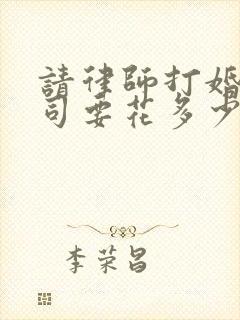 請律師打婚
司要花多少
李荣昌